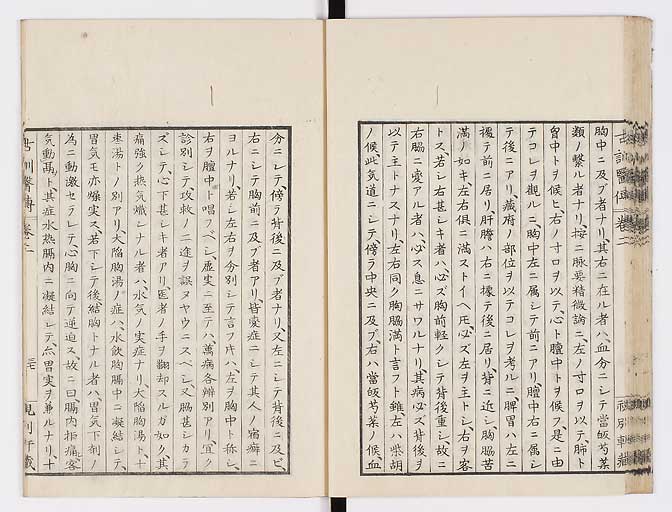 胸中ニ及ブ者ナリ、其右ニ在ル者ハ血分ニシテ當皈芍薬
類ノ繋ル者ナリ、按ニ脉要精微論ニ、左ノ寸口ヲ以テ肺ト
胷中トヲ候ヒ、右ノ寸口ヲ以テ、心ト膻中トヲ候フ、是ニ由
テコレヲ觀ルニ、胸中左ニ属シテ前ニアリ、膻中右ニ属シ
テ後ニアリ、藏府ノ部位ヲ以テコレヲ考ルニ脾胃ハ左ニ
據テ前ニ居リ、肝膽ハ右ニ據テ後ニ居リ、背ニ近シ、胸脇苦
滿ノ如キ、左右俱ニ滿ストイヘ𪜈、必ズ左ヲ主トシ、右ヲ客
トス若シ右甚シキ者ハ、心ズ胸前軽クシテ背後重シ、故ニ
右脇ニ変アル者ハ、必ス息ニサワルナリ、其病必ズ背後ヲ
以テ主トナスナリ、左右同ク胸脇滿ト言フト雖、左ハ柴胡
ノ候、此気道ニシテ、傍ラ中央ニ及ブ、右ハ當皈芍薬ノ候、血
分ニシテ、傍ラ背後ニ及ブ者ナリ、又左ニシテ背後ニ及ビ、
右ニシテ胸前ニ及ブ者アリ、皆変症ニシテ其人ノ宿癖ニ
ヨルナリ、若シ左右ヲ分別シテ言フ𪜈ハ、左ヲ胸中ト称シ、
右ヲ膻中ト唱フベシ、虚実ニ至テハ萬病各辨別アリ、宜ク
診別シテ、攻救ノ二途ヲ誤ヌヤウニスベシ、又脇甚シカラ
ズシテ、心下甚シキ者アリ医者ノ手ヲ翻却スルガ如ク、其
痛強ク熱気熾シナル者ハ、水気ノ実症ナリ、大陥胸湯ト、十
棗湯トノ別アリ、大陥胸湯ノ症ハ、水飲胸膈中ニ凝結シテ、
胃気モ亦燥実ス、若下シテ後、結胸トナル者ハ、胃気下剤ノ
為ニ動激セラレテ、心胸ニ向テ逆迫ス、故ニ曰膈内拒痛、客
気動膈ト其症水熱膈内ニ凝結シテ、尒胃実ヲ兼ルナリ、十